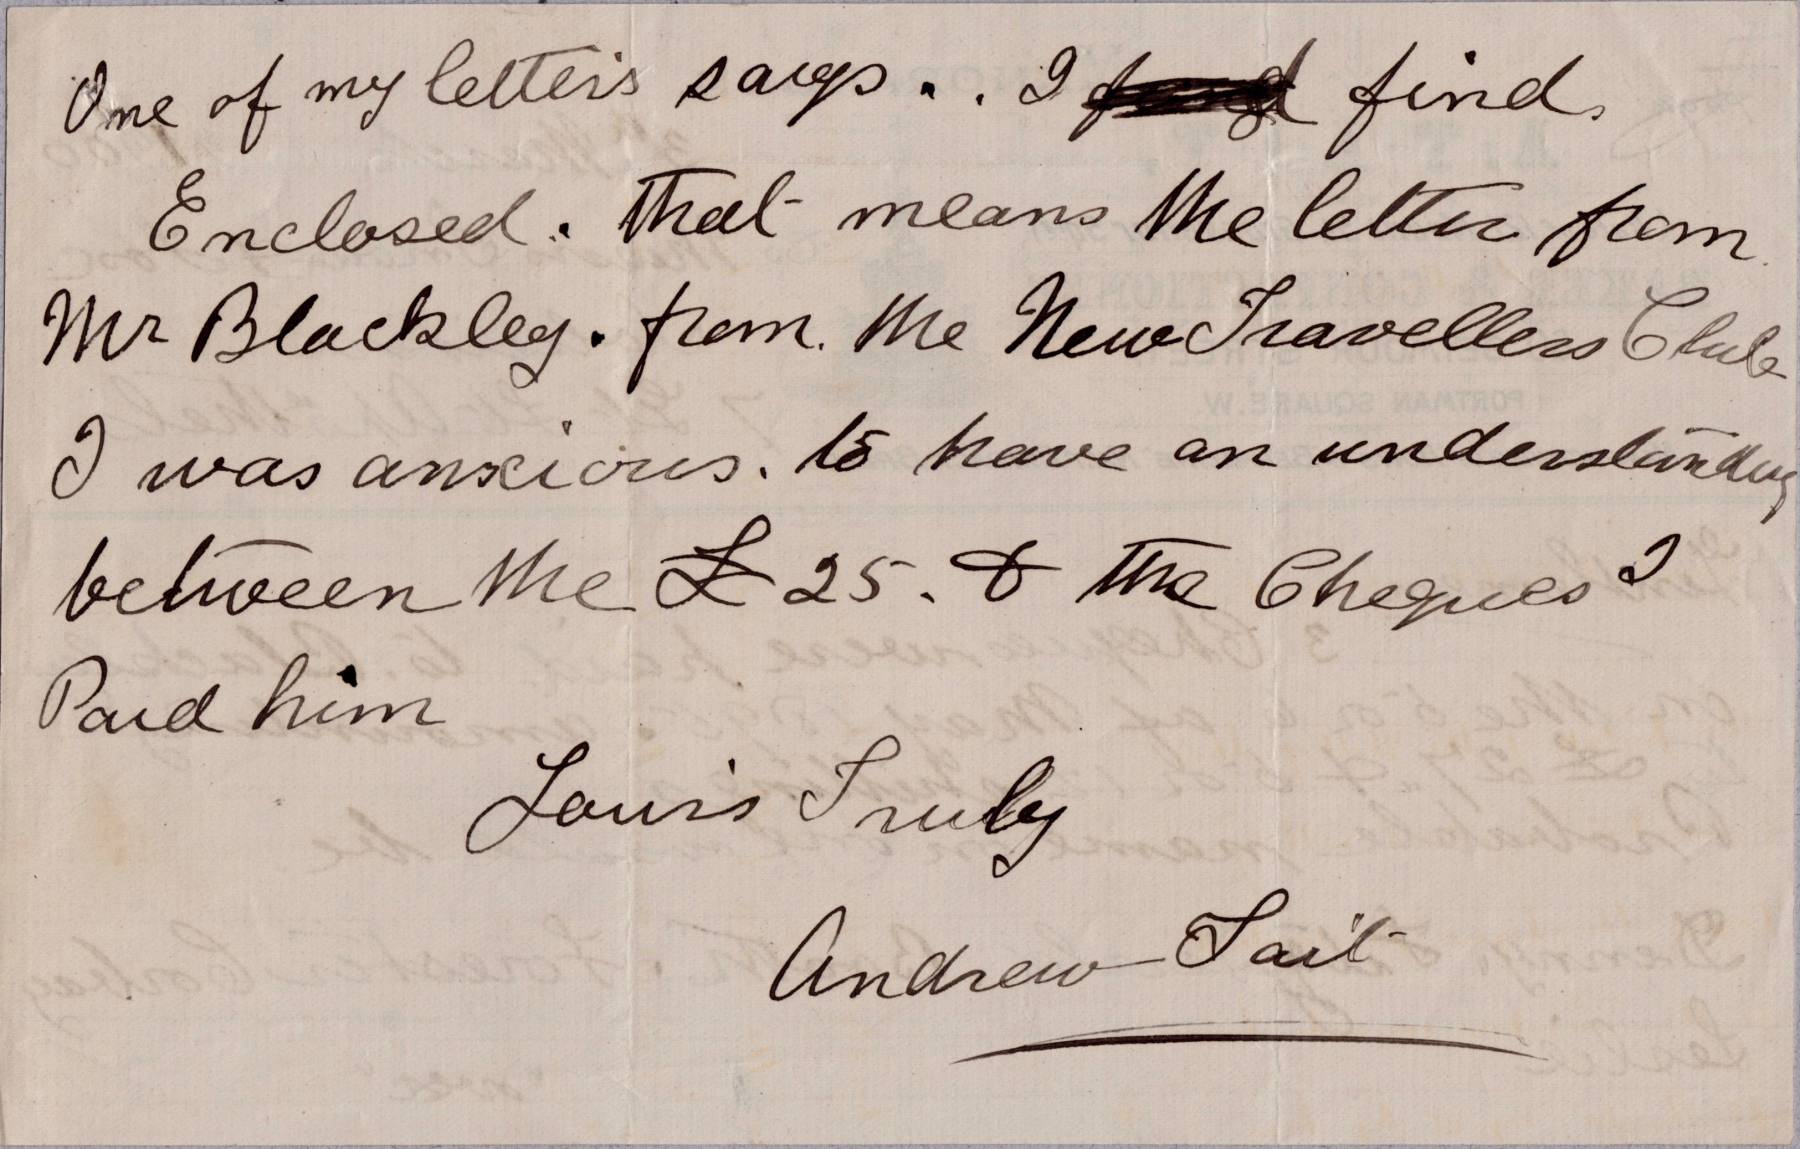 One of my letters says . . I find.
Enclosed. that means the letter from
Mr Blackley. from. the New Travellers Club
I was anxious. to have an understanding
between the £25. & the Cheques I
Paid him
Yours Truly
Andrew Tait